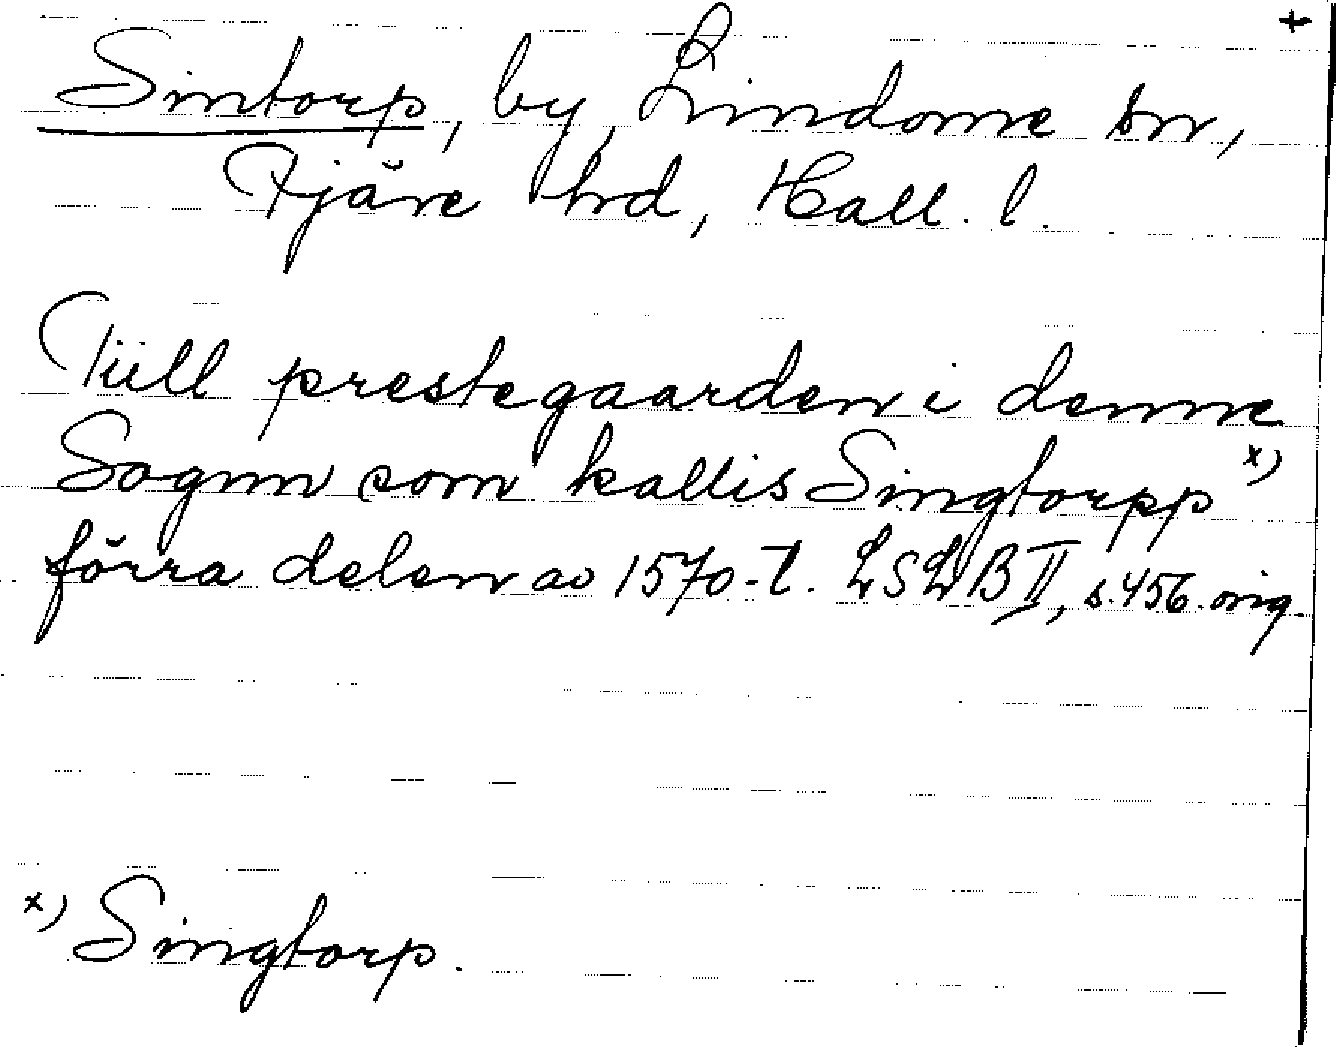 +
Sintorp, by, Lindome sn,
Fjäre hd, Hall. l.
Tiill prestegaarden i denne
Sognn som kallis Singtorpp x)
förra delen av 1570-t. LSLB II, s. 456. orig.
x) Singtorp.